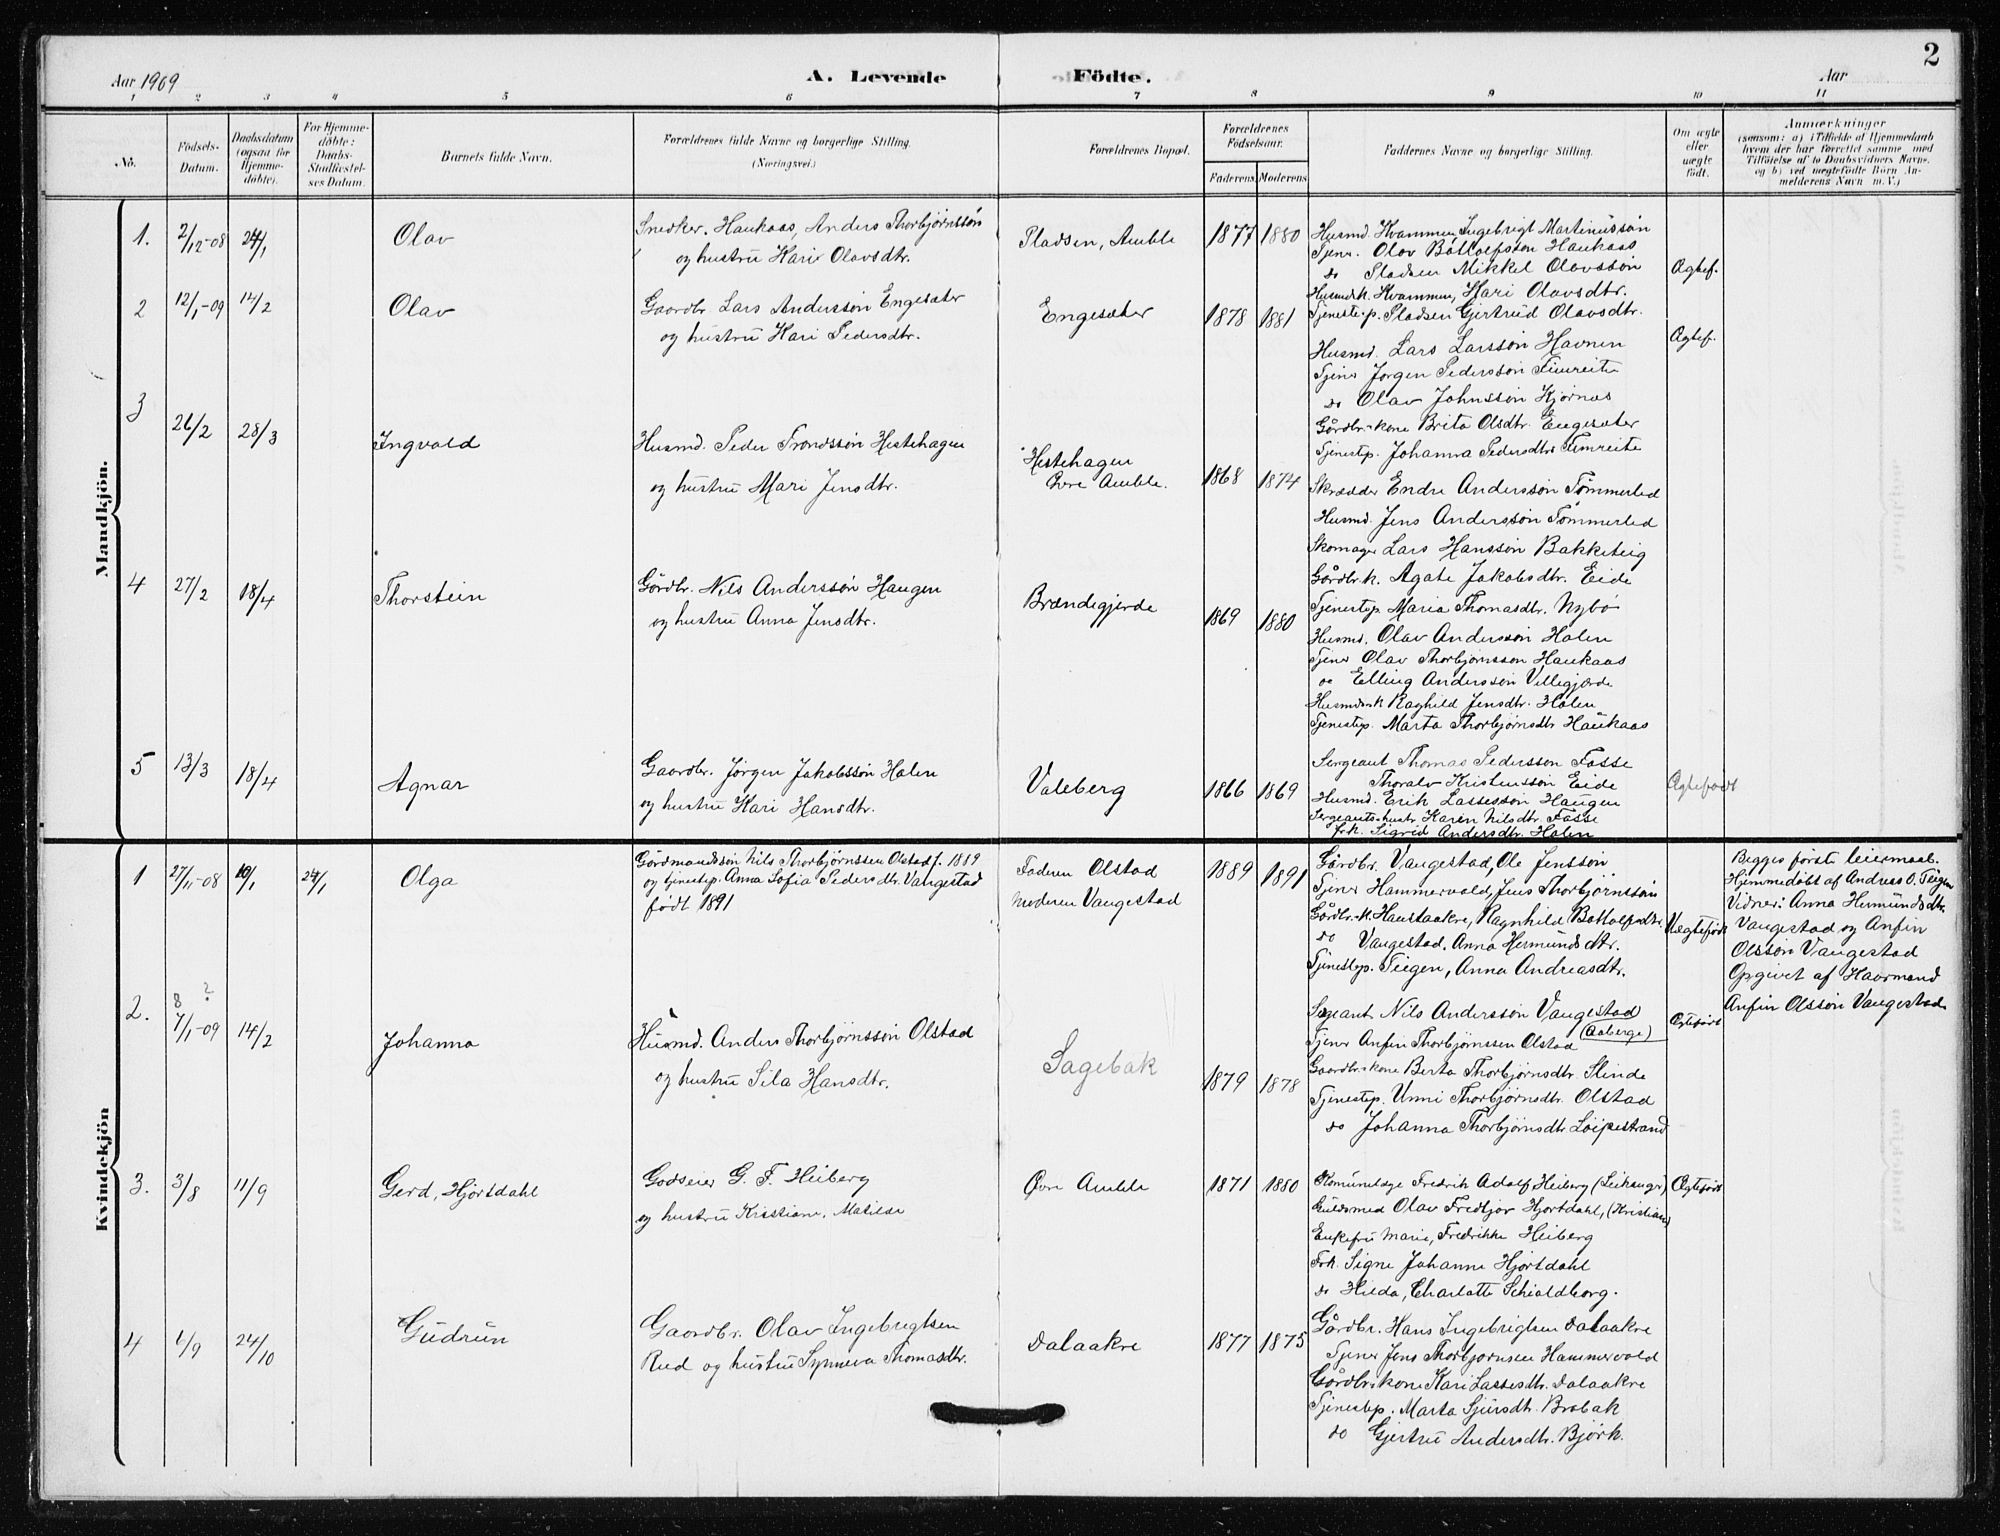 2
Aar 1909
A. Levende Födte.
Aar
1 2 3 4 5 6 7 8 9 10 11
No.
Födsels-Datum.
Daabsdatum (ogsaa for Hjemme-döbte).
For Hjemme-döbte: Daabs-Stadfæstel-ses Datum.
Barnets fulde Navn.
Forældrenes fulde Navne og borgerlige Stilling.
(Næringsvei.)
Forældrenes Bopæl.
Forældrenes Födselsaar.
Faderens. Moderens.
Faddernes Navne og borgerlige Stilling.
Om ægte eller uægte födt.
Anmærkninger
(saasom: a) i Tilfælde af Hjemmedaab
hvem der har forrettet samme med
Tilföielse af to Daabsvidners Navne.
og b) ved uægtefödte Börn An-
melderens Navn m. V.)
Mandkjön.
1. 2/12-08 24/1 Olav
Snedker. Haukaas, Anders Thorbjørnssøn
og hustru Kari Olavsdtr.
Pladsen, Amble 1877 1880
Husmd. Kvammen, Ingebrigt Martinussøn
Tjenr. Olav Botlolfssøn Haukaas
do Pladsen Mikkel Olavssøn
Husmdsk. Kvammen, Kari Olavsdtr.
Tjenestep. Pladsen Gjertrud Olavsdtr.
Ægtef.
2 12/1-09 14/2 Olav
Gaardbr. Lars Anderssøn Engesæter
og hustru Kari Pedersdtr.
Engesæter 1878 1881
Husmd. Lars Larssøn Havnen
Tjener Jørgen Pederssøn Fimreite
do Olav Johnssøn Kjørnæs
Gårdbr-kone Brita Olsdtr. Engesæter
Tjenestep. Johanna Pedersdtr Fimreite
Ægtef.
3 26/2 28/3 Ingvald
Husmd. Peder Trondssøn Hestehagen
og hustru Mari Jensdtr.
Hestehagen
Øvre Amble. 1868 1874
Skrædder Endre Anderssøn Tømmerlid
Husmd. Jens Anderssøn Tømmerlid
Skomager Lars Hanssøn Bakketeig
Gårdbr.k. Agate Jakobsdtr. Eide
Tjenestep. Maria Thomasdtr. Nybø
4 27/2 18/4 Thorstein
Gårdbr. Nils Anderssøn Haugen
og hustru Anna Jensdtr.
Brændegjerde 1869 1880
Husmd. Olav Anderssøn Holen
Tjener Olav Thorbjørnssøn Haukaas
do Elling Anderssøn Villegjærde
Husmdsk Ragnhild Jensdtr. Holen
Tjenestep. Marta Thorbjørnsdtr Haukaas
5 13/3 18/4 Agnar
Gaardbr. Jørgen Jakobssøn Holen
og hustru Kari Hansdtr.
Valeberg 1866 1869
Sergeant Thomas Pederssøn Fosse
Thoralv Kristenssøn Eide
Husmd. Erik Lassessøn Haugen
Sergeants-hustr Karen Nilsdtr. Fosse
frk. Sigrid Andersdtr. Holen
Ægtefødt
Kvindekjön
1 27/11-08 10/1 24/1 Olga
Gårdmandssøn Nils Thorbjørnssen Olstad f. 1889
og tjenestep. Anna Sofia Pedersdtr. Vangestad
født 1891
Faderen Olstad
Moderen Vangestad 1889 1891
Gårdbr. Vangestad, Ole Jenssøn
Tjener Hammervold, Jens Thorbjørnssøn
Gårdbr.-k. Haustaakre, Ragnhild Botholfsdtr.
do Vangestad. Anna Hermundsdtr.
Tjenestep. Teigen, Anna Andreasdtr.
Uægtefødt
Begges første leiermaal.
Hjemmedøbt af Andreas O. Teigen
Vidner: Anna Hermundsdtr.
Vangestad og Anfin
Olssøn Vangestad
Opgivet af Havrmand
Anfin Olssøn Vangestad
2. 8 ?
7/1-09 14/2 Johanna
Husmd. Anders Thorbjørnssøn Olstad
og hustru Sila Hansdtr.
Sagebak 1879 1878
Sergeant. Nils Anderssøn Vangestad
(Aaberge)
Tjener Anfin Thorbjørnssen Olstad
Gaardbr-kone Berta Thorbjørnsdtr. Slinde
Tjenestep. Unni Thorbjørnsdtr. Olstad
do Johanna Thorbjørnsdtr Løipestrand
Ægtefødt
3. 3/8 11/9 Gerd, Hjortdahl
Godseier G. F. Heiberg
og hustru Kristiane, Matilde
Øvre Amble 1871 1880
Komunelæge Fredrik Adolf Heiberg (Leikanger)
Guldsmed Olav Fredtjov Hjortdahl, (Kristiania)
Enkefru Marie, Fredrikke Heiberg
Frk. Signe Johanne Hjortdahl
do Hilda, Charlotte Schioldborg.
Ægtefødt
4 1/9 24/10 Gudrun
Gaardbr. Olav Ingebrigtsen
Rud og hustru Synneva Thomasdtr.
Dalaakre 1877 1875
Gårdbr. Hans Ingebrigtsen Dalaakre
Tjener Jens Thorbjørnsen Hammervold
Gårdbr-kone Kari Lassesdtr. Dalaakre
Tjenestep. Marta Sjursdtr. Brobak
do Gjertru Andersdtr. Bjørk.